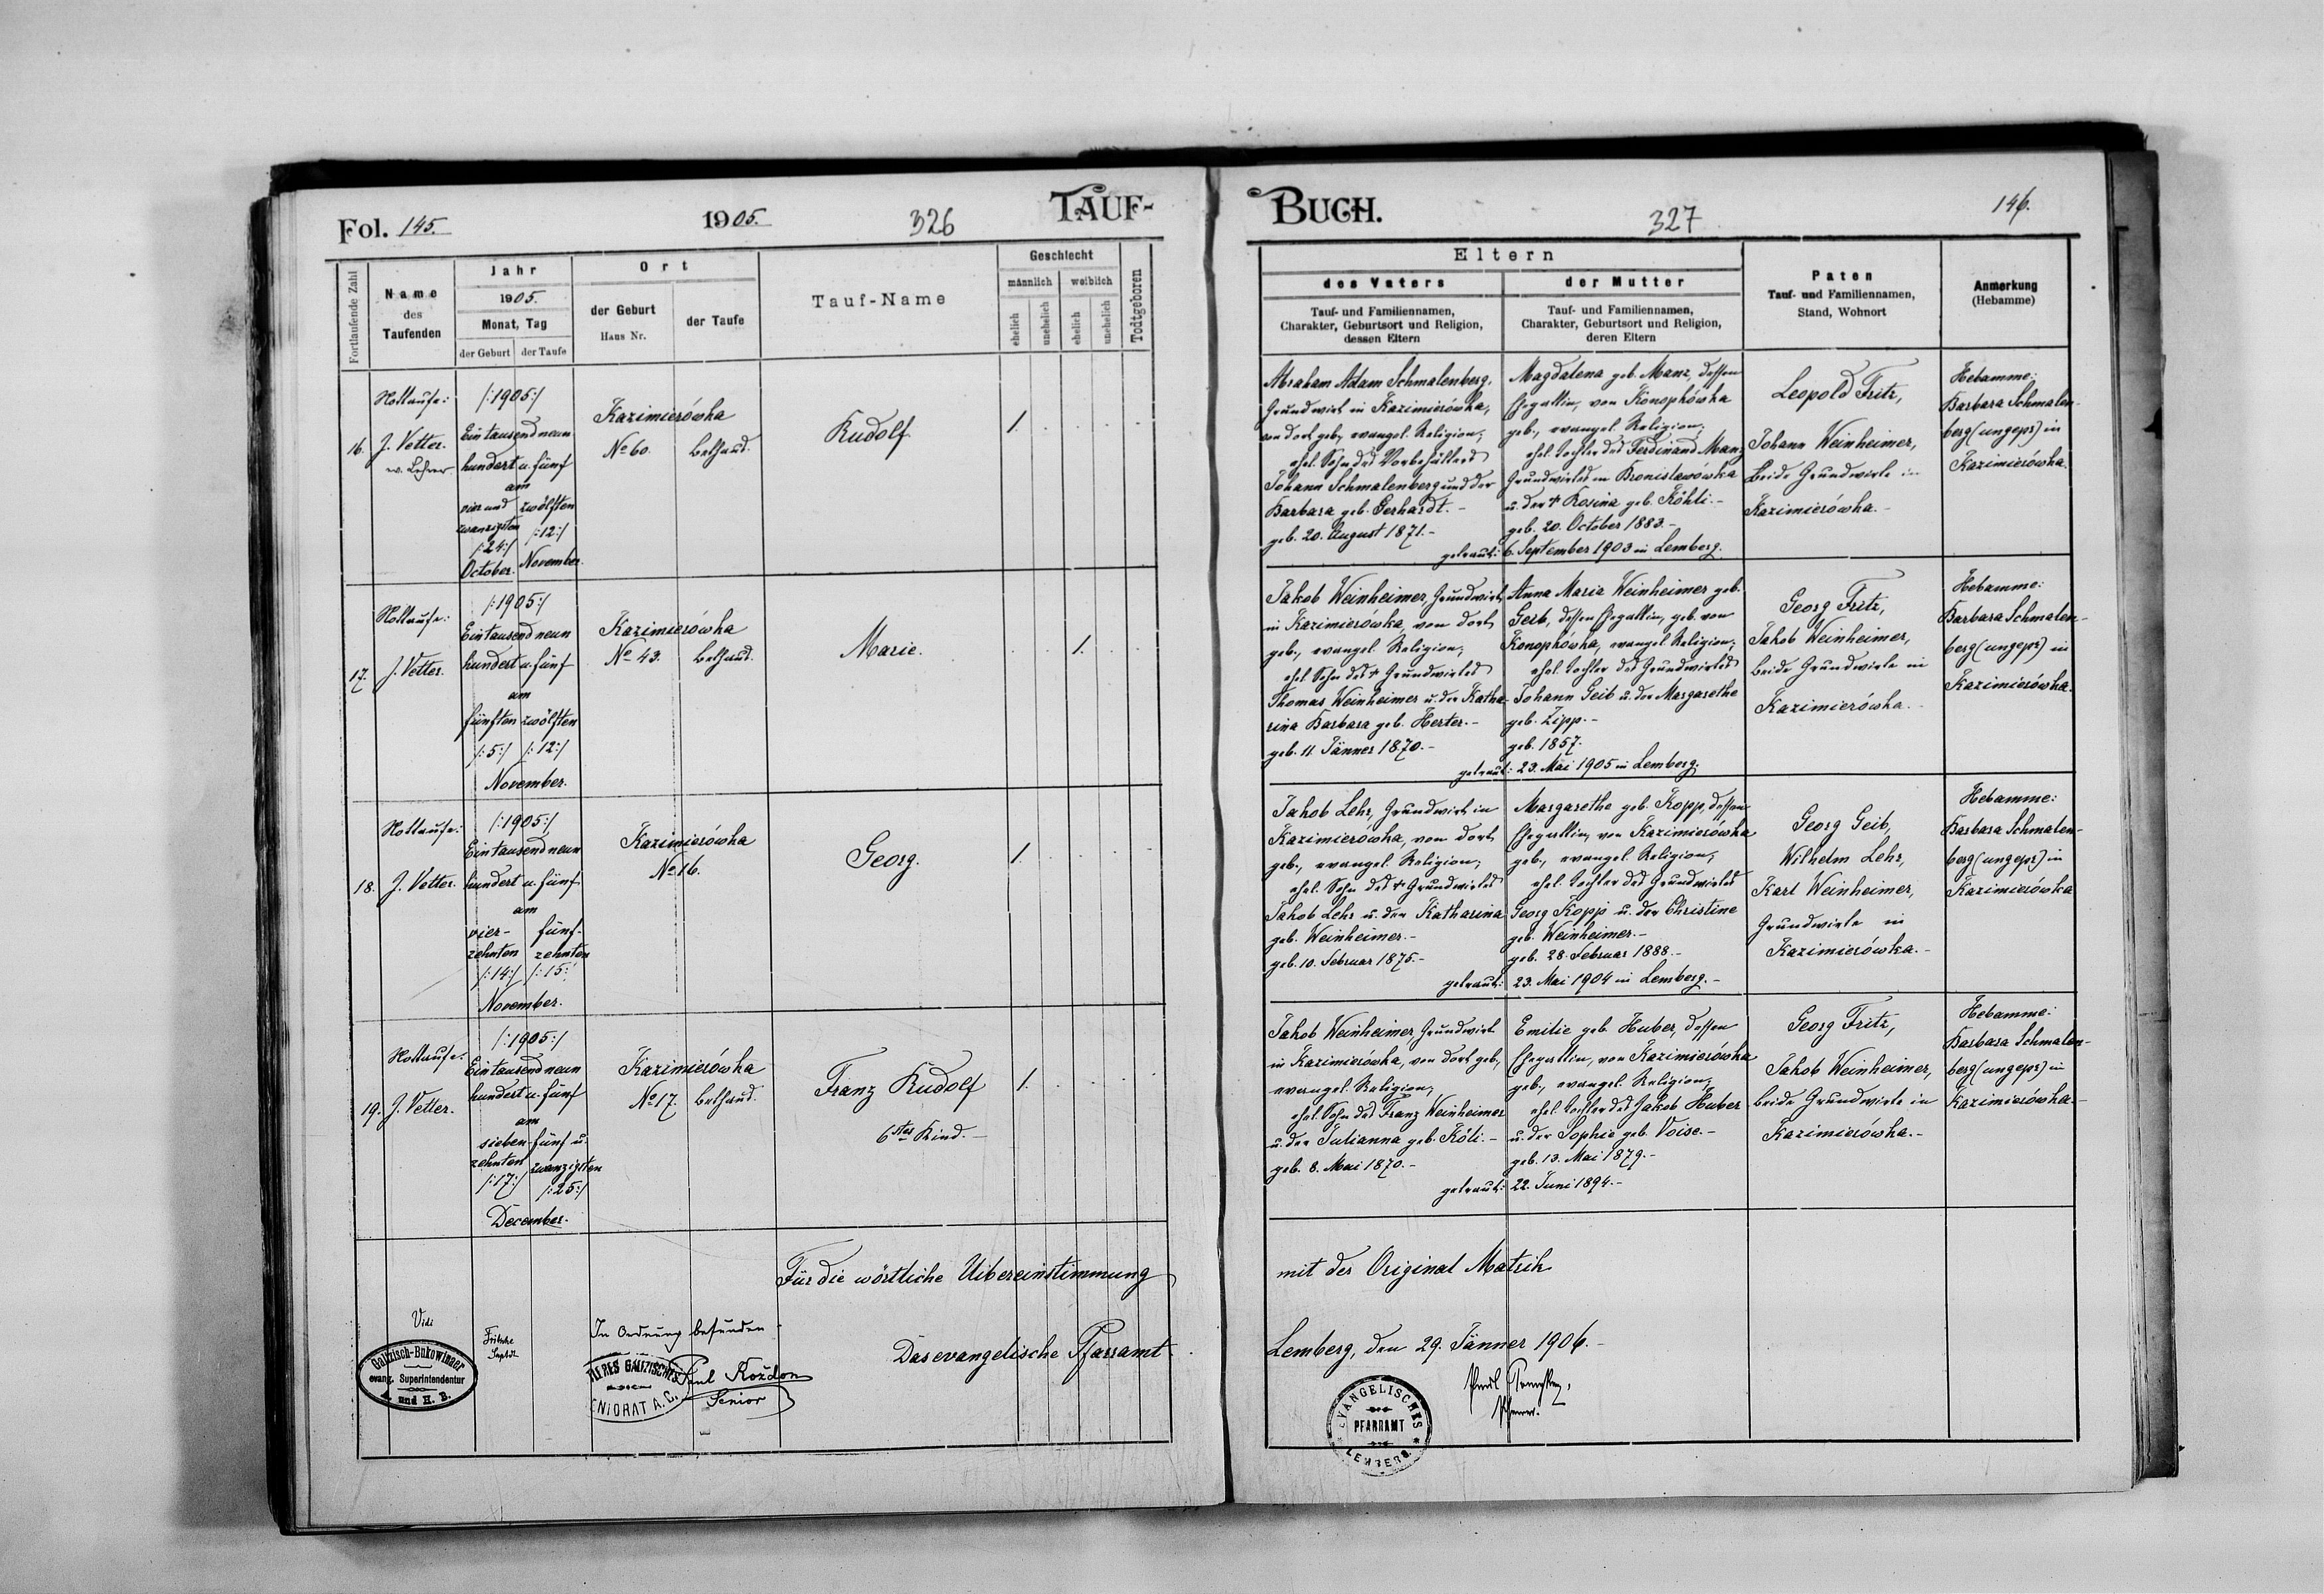 Fol. 145.
1905.
326
TAUF-
Fortlaufende Zahl
Name
des
Taufenden
Jahr
1905.
Monat, Tag
der Geburt
der Taufe
Ort
der Geburt
Haus Nr.
der Taufe
Tauf-Name
Geschlecht
männlich
weiblich
ehelich
unehelich
ehelich
unehelich
Todtgeboren
16.
Nottaufe:
J. Vetter.
ev. Lehrer.
/:1905:/
Eintausend neun
hundert u. fünf
am
vier und
zwanzigsten
/:24:/
October.
zwölften
/:12:/
November.
Kazimierówka
No 60.
Bethaus.
Rudolf
1.
17.
Nottaufe:
J. Vetter.
/:1905:/
Eintausend neun
hundert u. fünf
am
fünften zwölften
/:5:/ /:12:/
November.
Kazimierówka
No 43.
Bethaus.
Marie.
1.
18.
Nottaufe:
J. Vetter.
/:1905:/
Eintausend neun
hundert u. fünf
am
vier- fünf-
zehnten zehnten
/:14:/ /:15:/
November.
Kazimierówka
No 16.
Georg.
1.
19.
Nottaufe.
J. Vetter.
/:1905:/
Eintausend neun
hundert u. fünf
am
sieben- fünf u.
zehnten zwanzigsten
/:17:/ /:25:/
December.
Kazimierówka
No 17.
Bethaus.
Franz Rudolf
6tes Kind.-
1.
Für die wörtliche Uibereinstimmung
Vidi
Galizisch-Bukowinaer
evang. Superintendentur
A. und H. B.
Fritsche
Suptdt.
In Ordnung befunden
GALIZISCHES
SENIORAT A. C.
Paul Rozdon
Senior
Das evangelische Pfarramt.
BUCH.
327
146.
Eltern
des Vaters
Tauf- und Familiennamen,
Charakter, Geburtsort und Religion,
dessen Eltern
der Mutter
Tauf- und Familiennamen,
Charakter, Geburtsort und Religion,
deren Eltern
Paten
Tauf- und Familiennamen,
Stand, Wohnort
Anmerkung
(Hebamme)
Abraham Adam Schmalenberg,
Grundwirt in Kazimierówka,
von dort geb., evangel. Religion;
ehel. Sohn des Vorbehälters
Johann Schmalenberg und der
Barbara geb. Gerhardt.-
geb. 20. August 1871.-
Magdalena geb. Manz, dessen
Ehegattin, von Konopkówka
geb., evangel. Religion;
ehel. Tochter des Ferdinand Manz
Grundwirtes in Bronislawówka
u. der † Rosina geb. Köhli.-
geb. 20. October 1883.-
getraut: 6. September 1903 in Lemberg.
Leopold Fritz,
Johann Weinheimer,
beide Grundwirte in
Kazimierówka.-
Hebamme:
Barbara Schmalen-
berg (ungepr) in
Kazimierówka.
Jakob Weinheimer, Grundwirt
in Kazimierówka, von dort
geb., evangel. Religion;
ehel. Sohn des † Grundwirtes
Thomas Weinheimer u. der Katha-
rina Barbara geb. Herter.-
geb. 11. Jänner 1870.-
Anna Maria Weinheimer geb.
Geib, dessen Ehegattin, geb. von
Konopkówka, evangel. Religion;
ehel. Tochter des Grundwirtes
Johann Geib u. der Margarethe
geb. Zipp.-
geb. 1857.
getraut: 23. Mai 1905 in Lemberg.
Georg Fritz,
Jakob Weinheimer,
beide Grundwirte in
Kazimierówka.-
Hebamme:
Barbara Schmalen-
berg (ungepr) in
Kazimierówka.
Jakob Lehr, Grundwirt in
Kazimierówka, von dort
geb., evangel. Religion;
ehel. Sohn des † Grundwirtes
Jakob Lehr u. der Katharina
geb. Weinheimer.-
geb. 10. Februar 1875.-
Margarethe geb. Kopp, dessen
Ehegattin, von Kazimierówka
geb., evangel. Religion;
ehel. Tochter des Grundwirtes
Georg Kopp u. der Christine
geb. Weinheimer.-
geb. 28. Februar 1888.-
getraut: 23. Mai 1904 in Lemberg.-
Georg Geib,
Wilhelm Lehr,
Karl Weinheimer,
Grundwirte in
Kazimierówka.-
Hebamme:
Barbara Schmalen-
berg (ungepr) in
Kazimierówka
Jakob Weinheimer, Grundwirt
in Kazimierówka, von dort geb.,
evangel. Religion;
ehel. Sohn des Franz Weinheimer
u. der Julianna geb. Köli.-
geb. 8. Mai 1870.-
Emilie geb. Huber, dessen
Ehegattin, von Kazimierówka
geb., evangel. Religion;
ehel. Tochter des Jakob Huber
u. der Sophie geb. Voise.-
geb. 13. Mai 1879.-
getraut: 22. Juni 1894.-
Georg Fritz,
Jakob Weinheimer,
beide Grundwirte in
Kazimierówka.-
Hebamme:
Barbara Schmalen-
berg (ungepr) in
Kazimierówka.-
mit der Original Matrik
Lemberg, den 29. Jänner 1906.-
EVANGELISCHES
PFARRAMT
LEMBERG.
Pfarrer.